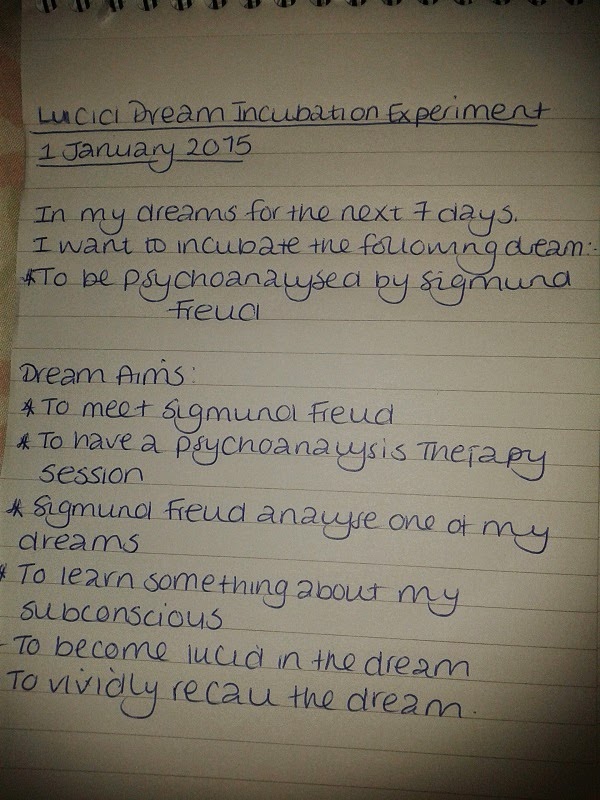 Lucid Dream Incubation Experiment
1 January 2015
In my dreams for the next 7 days.
I want to incubate the following dream:-
*To be psychoanalysed by Sigmund
Freud
Dream Aims:
* To meet Sigmund Freud
* To have a psychoanalysis Therapy
session
* Sigmund Freud analyse one of my
dreams
* To learn something about my
subconscious
- To become lucid in the dream
To vividly recall the dream.